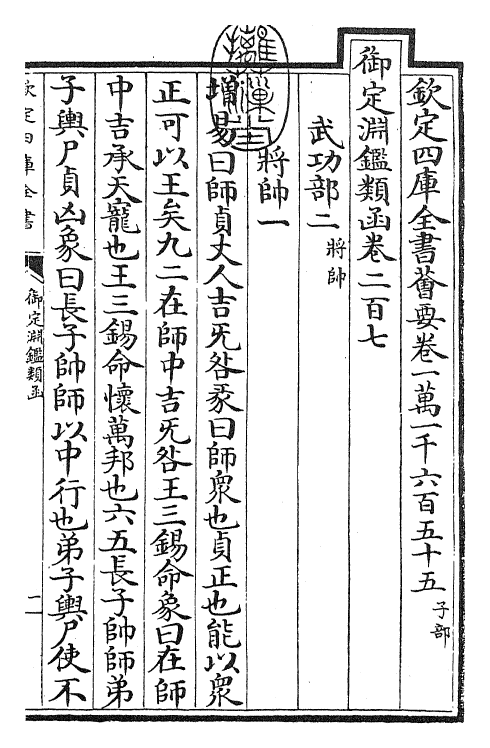 欽定四庫全書薈要卷一萬一千六百五十五 子部
御定淵鑑類函卷二百七
武功部二 將帥
將帥一
增易曰師貞丈人吉旡咎彖曰師衆也貞正也能以衆
正可以王矣九二在師中吉旡咎王三錫命象曰在師
中吉承天寵也王三錫命懷萬邦也六五長子帥師弟
子輿尸貞凶象曰長子帥師以中行也弟子輿尸使不
欽定四庫全書
御定淵鑑類函
一